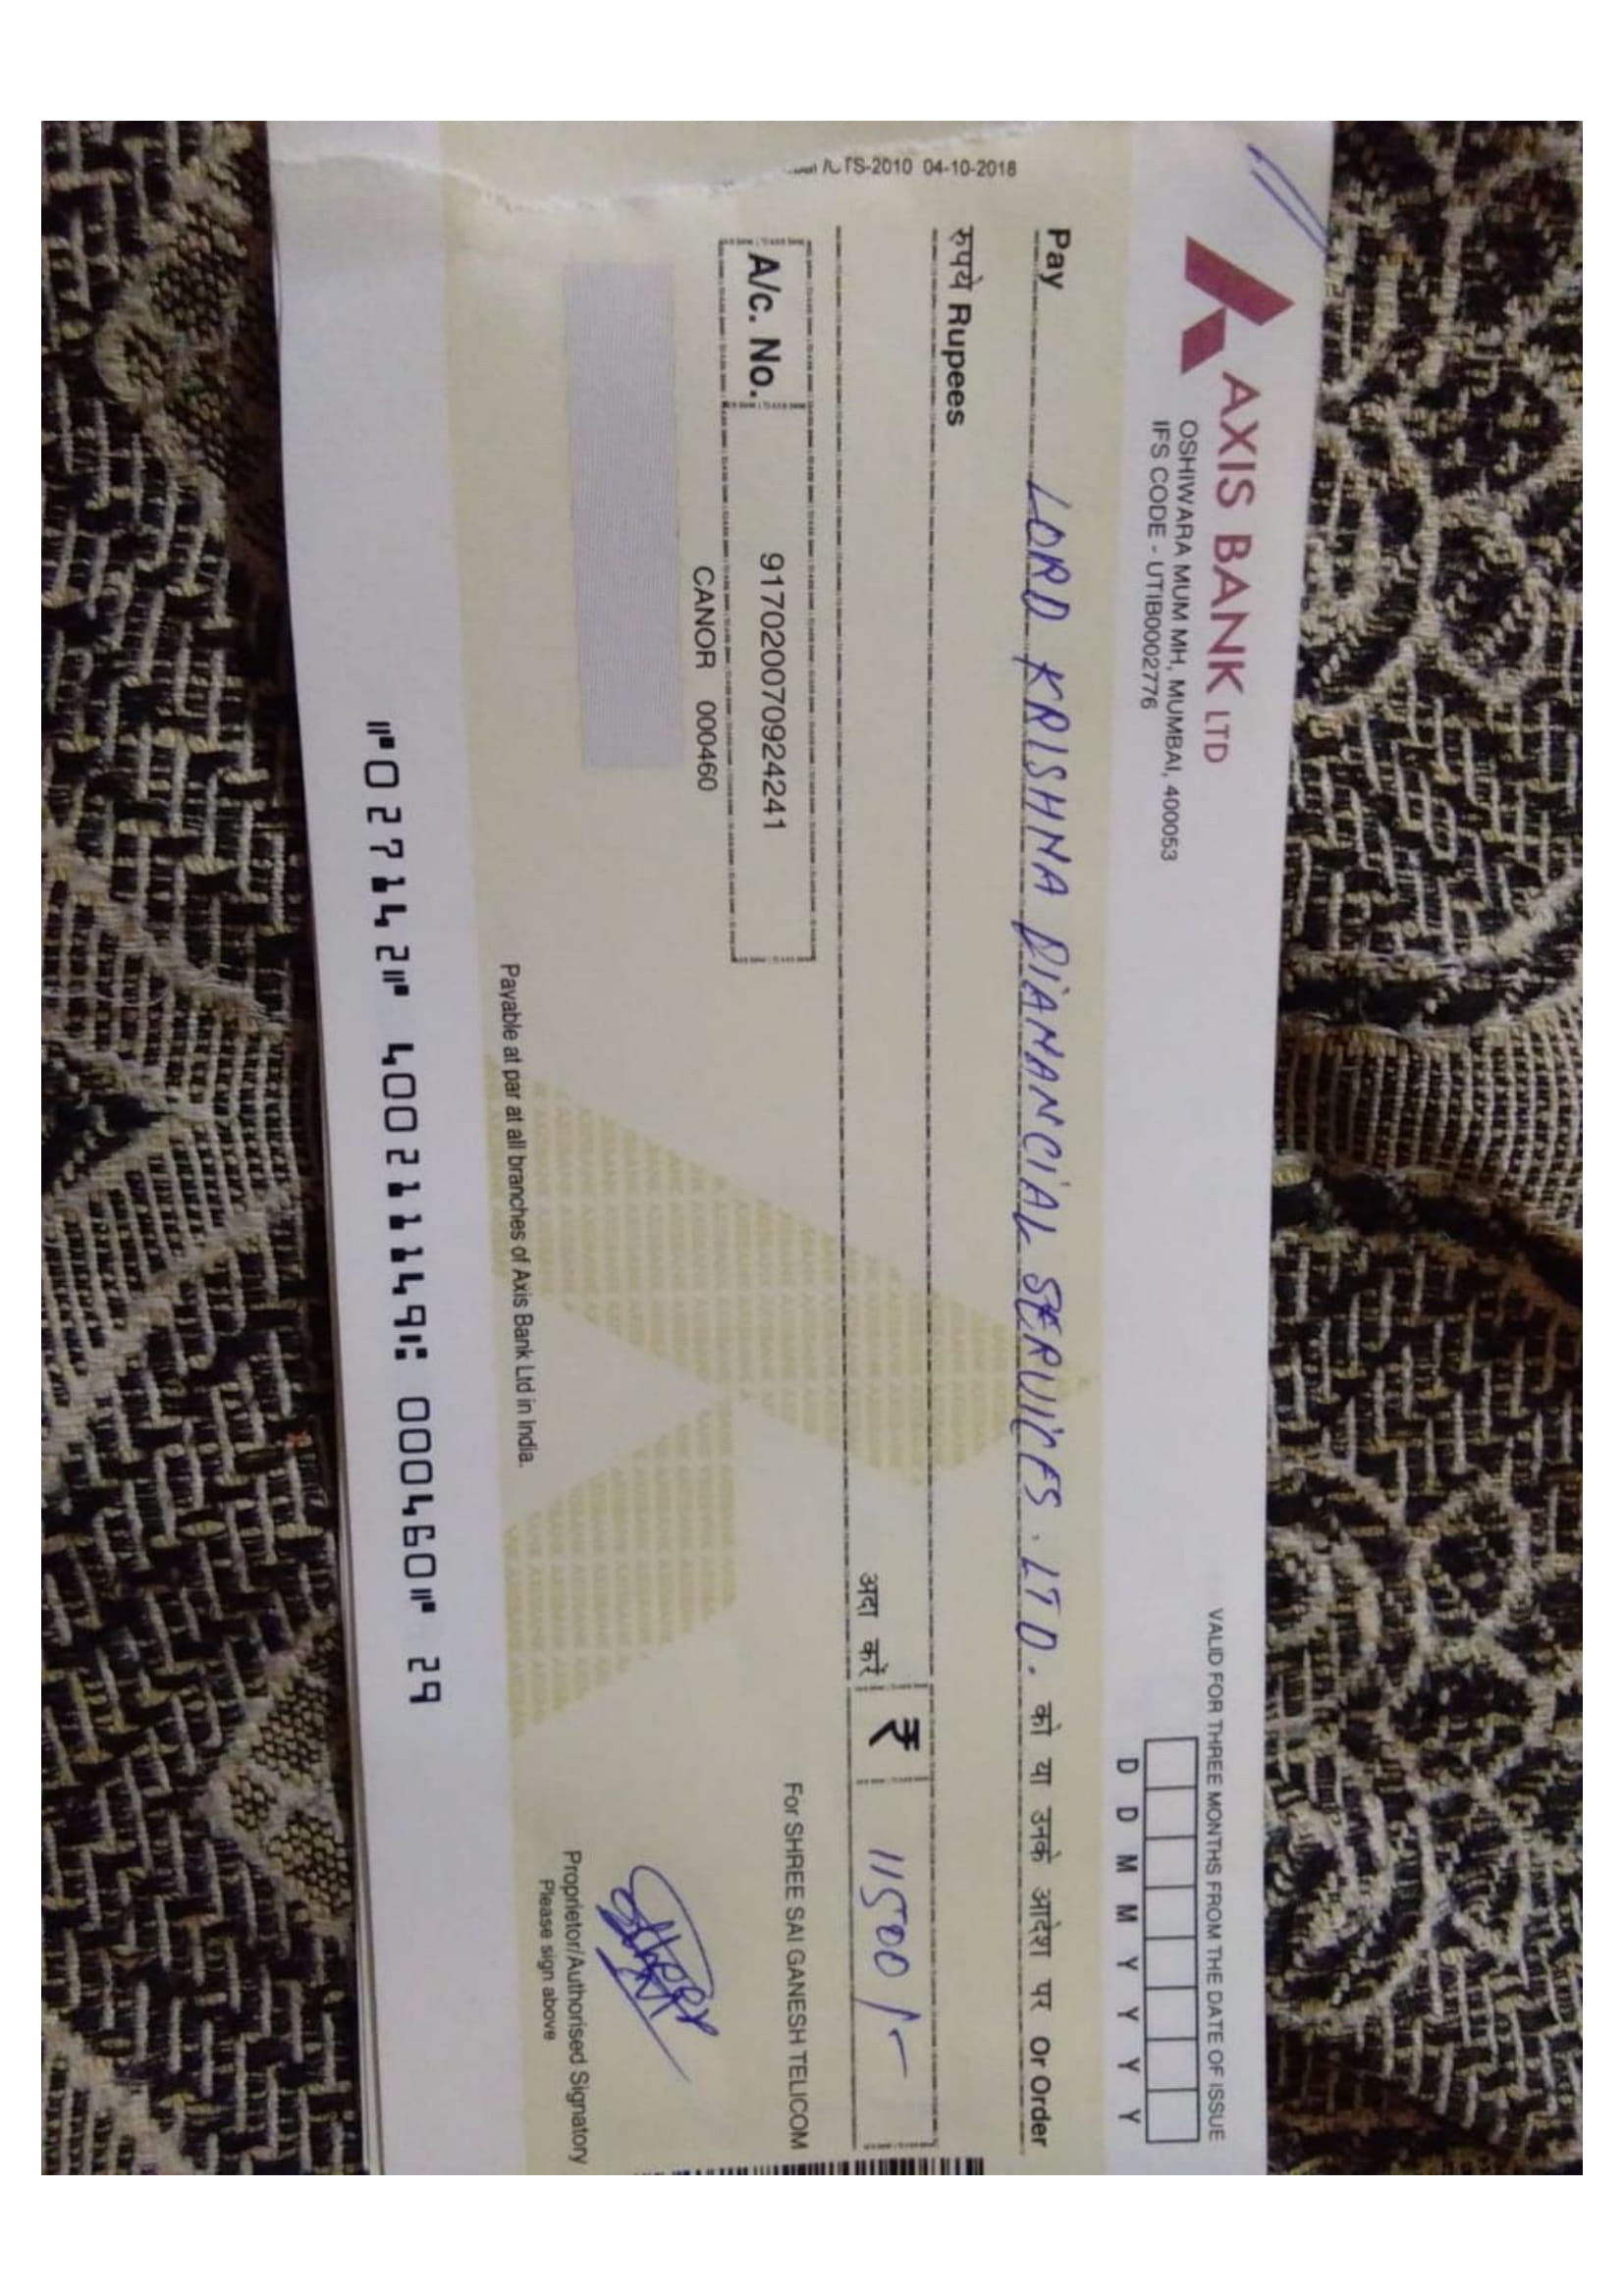 AXIS BANK LTD
OSHIWARA MUM MH, MUMBAI, 400053
IFS CODE - UTIB0002776
VALID FOR THREE MONTHS FROM THE DATE OF ISSUE
D D M M Y Y Y Y
Pay LORD KRISHNA FIANANCIAL SERVICES. LTD. को या उनके आदेश पर Or Order
रुपये Rupees
अदा करें ₹ 11500/-
A/c. No. 917020070924241
CANOR 000460
For SHREE SAI GANESH TELICOM
Proprietor/Authorised Signatory
Please sign above
Payable at par at all branches of Axis Bank Ltd in India.
⑈027142⑈ 400211149⑆ 000460⑈ 29
CTS-2010 04-10-2018